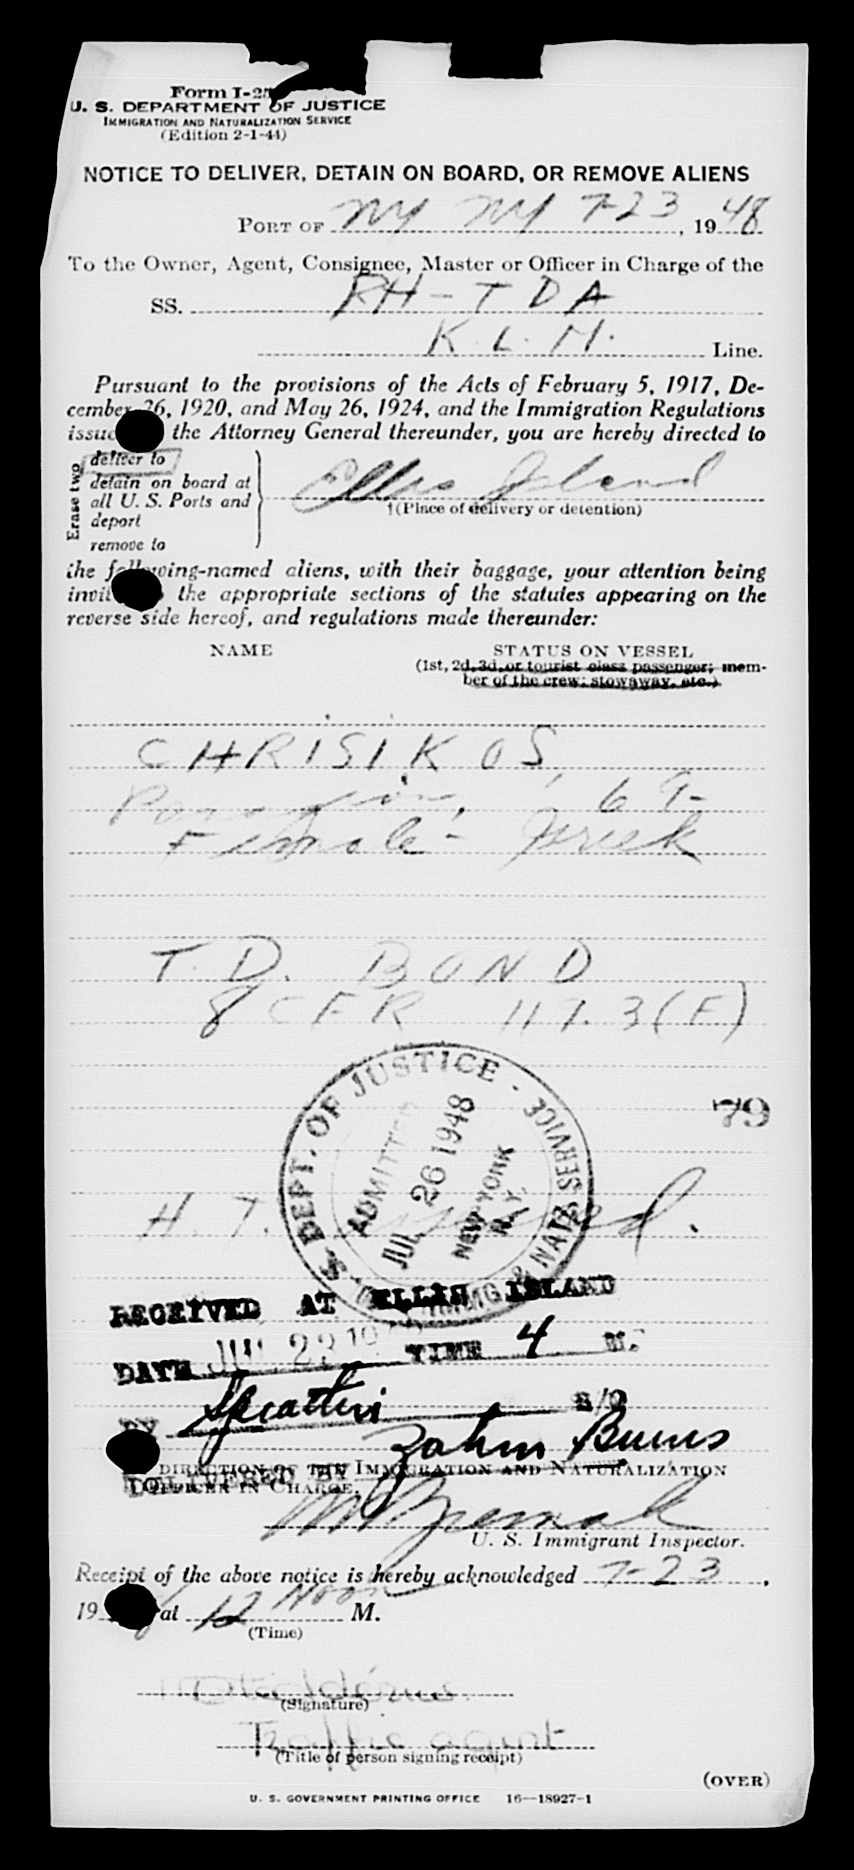 Form I-25
U. S. DEPARTMENT OF JUSTICE
IMMIGRATION AND NATURALIZATION SERVICE
(Edition 2-1-44)
NOTICE TO DELIVER, DETAIN ON BOARD, OR REMOVE ALIENS
PORT OF NY NY 7-23, 1948
To the Owner, Agent, Consignee, Master or Officer in Charge of the
SS. PH-TDA
K. L. M. Line.
Pursuant to the provisions of the Acts of February 5, 1917, De-
cember 26, 1920, and May 26, 1924, and the Immigration Regulations
issue the Attorney General thereunder, you are hereby directed to
Erase two
deliver to
detain on board at
all U. S. Ports and
deport
remove to
Ellis Island
†(Place of delivery or detention)
the following-named aliens, with their baggage, your attention being
invit the appropriate sections of the statutes appearing on the
reverse side hereof, and regulations made thereunder:
NAME STATUS ON VESSEL
(1st, 2d, 3d, or tourist class passenger; mem-
ber of the crew; stowaway, etc.)
CHRISIKOS,
69-
Female - Greek
T. D. BOND
8 CFR 117.3(F)
U. S. DEPT. OF JUSTICE - IMMIG & NATZ SERVICE
ADMITTED
JUL 26 1948
NEW YORK
N. Y.
79
H. T.
RECEIVED AT ELLIS ISLAND
DATE JUL 23 19 TIME 4 M.
BY
Burns
DIRECTION OF THE IMMIGRATION AND NATURALIZATION
OFFICER IN CHARGE.
DELIVERED BY
U. S. Immigrant Inspector.
Receipt of the above notice is hereby acknowledged 7-23,
19 at 12 Noon M.
(Time)
(Signature)
Traffic agent
(Title of person signing receipt)
(OVER)
U. S. GOVERNMENT PRINTING OFFICE 16—18927-1